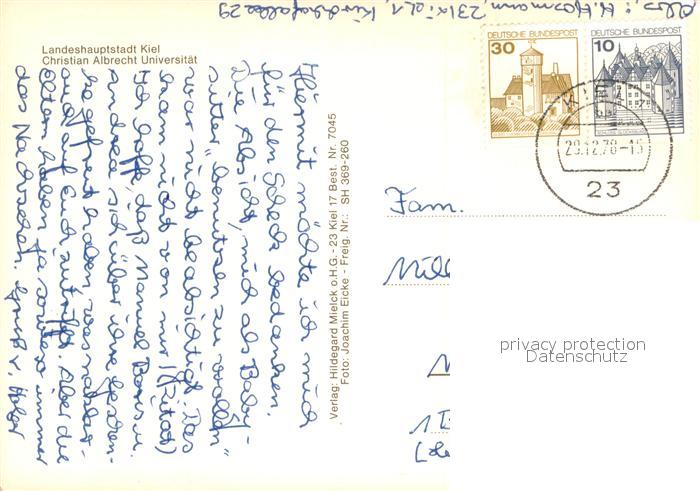 Abs.: H. Hormann, 23 Kiel 1, Kirchhofallee 29
Landeshauptstadt Kiel
Christian Albrecht Universität
Hiermit möchte ich mich
für den Scheck bedanken.
Die Absicht, mich als Baby-
sitter "benutzen zu wollen"
war nicht beabsichtigt. Das
kam nicht von mir! (Rita!)
Ich hoffe, daß Manuel Boris u.
Andrea sich über ihre geschen-
ke gefreut haben, was
auf Euch zutrifft. Aber die
Eltern haben ja sowieso immer
das Nachsehen. Gruß v. Holger
Verlag: Hildegard Mielck o.H.G. - 23 Kiel 17 Best. Nr. 7045
Foto: Joachim Eicke - Freig. Nr.: SH 369-260
DEUTSCHE BUNDESPOST
30
DEUTSCHE BUNDESPOST
10
KIEL
29.12.78-15
23
Fam.
privacy protection
Datenschutz